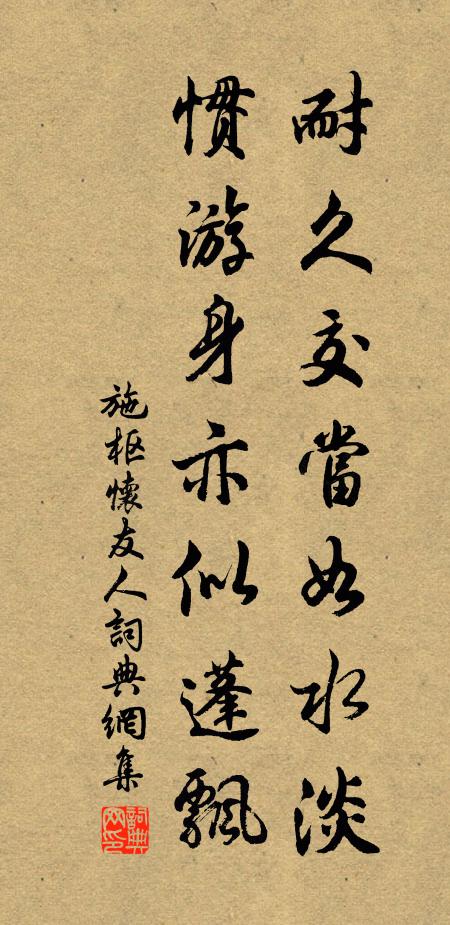 耐久交當如水淡
慣游身亦似蓬飄
施枢懷友人詞典網集
詞典網印